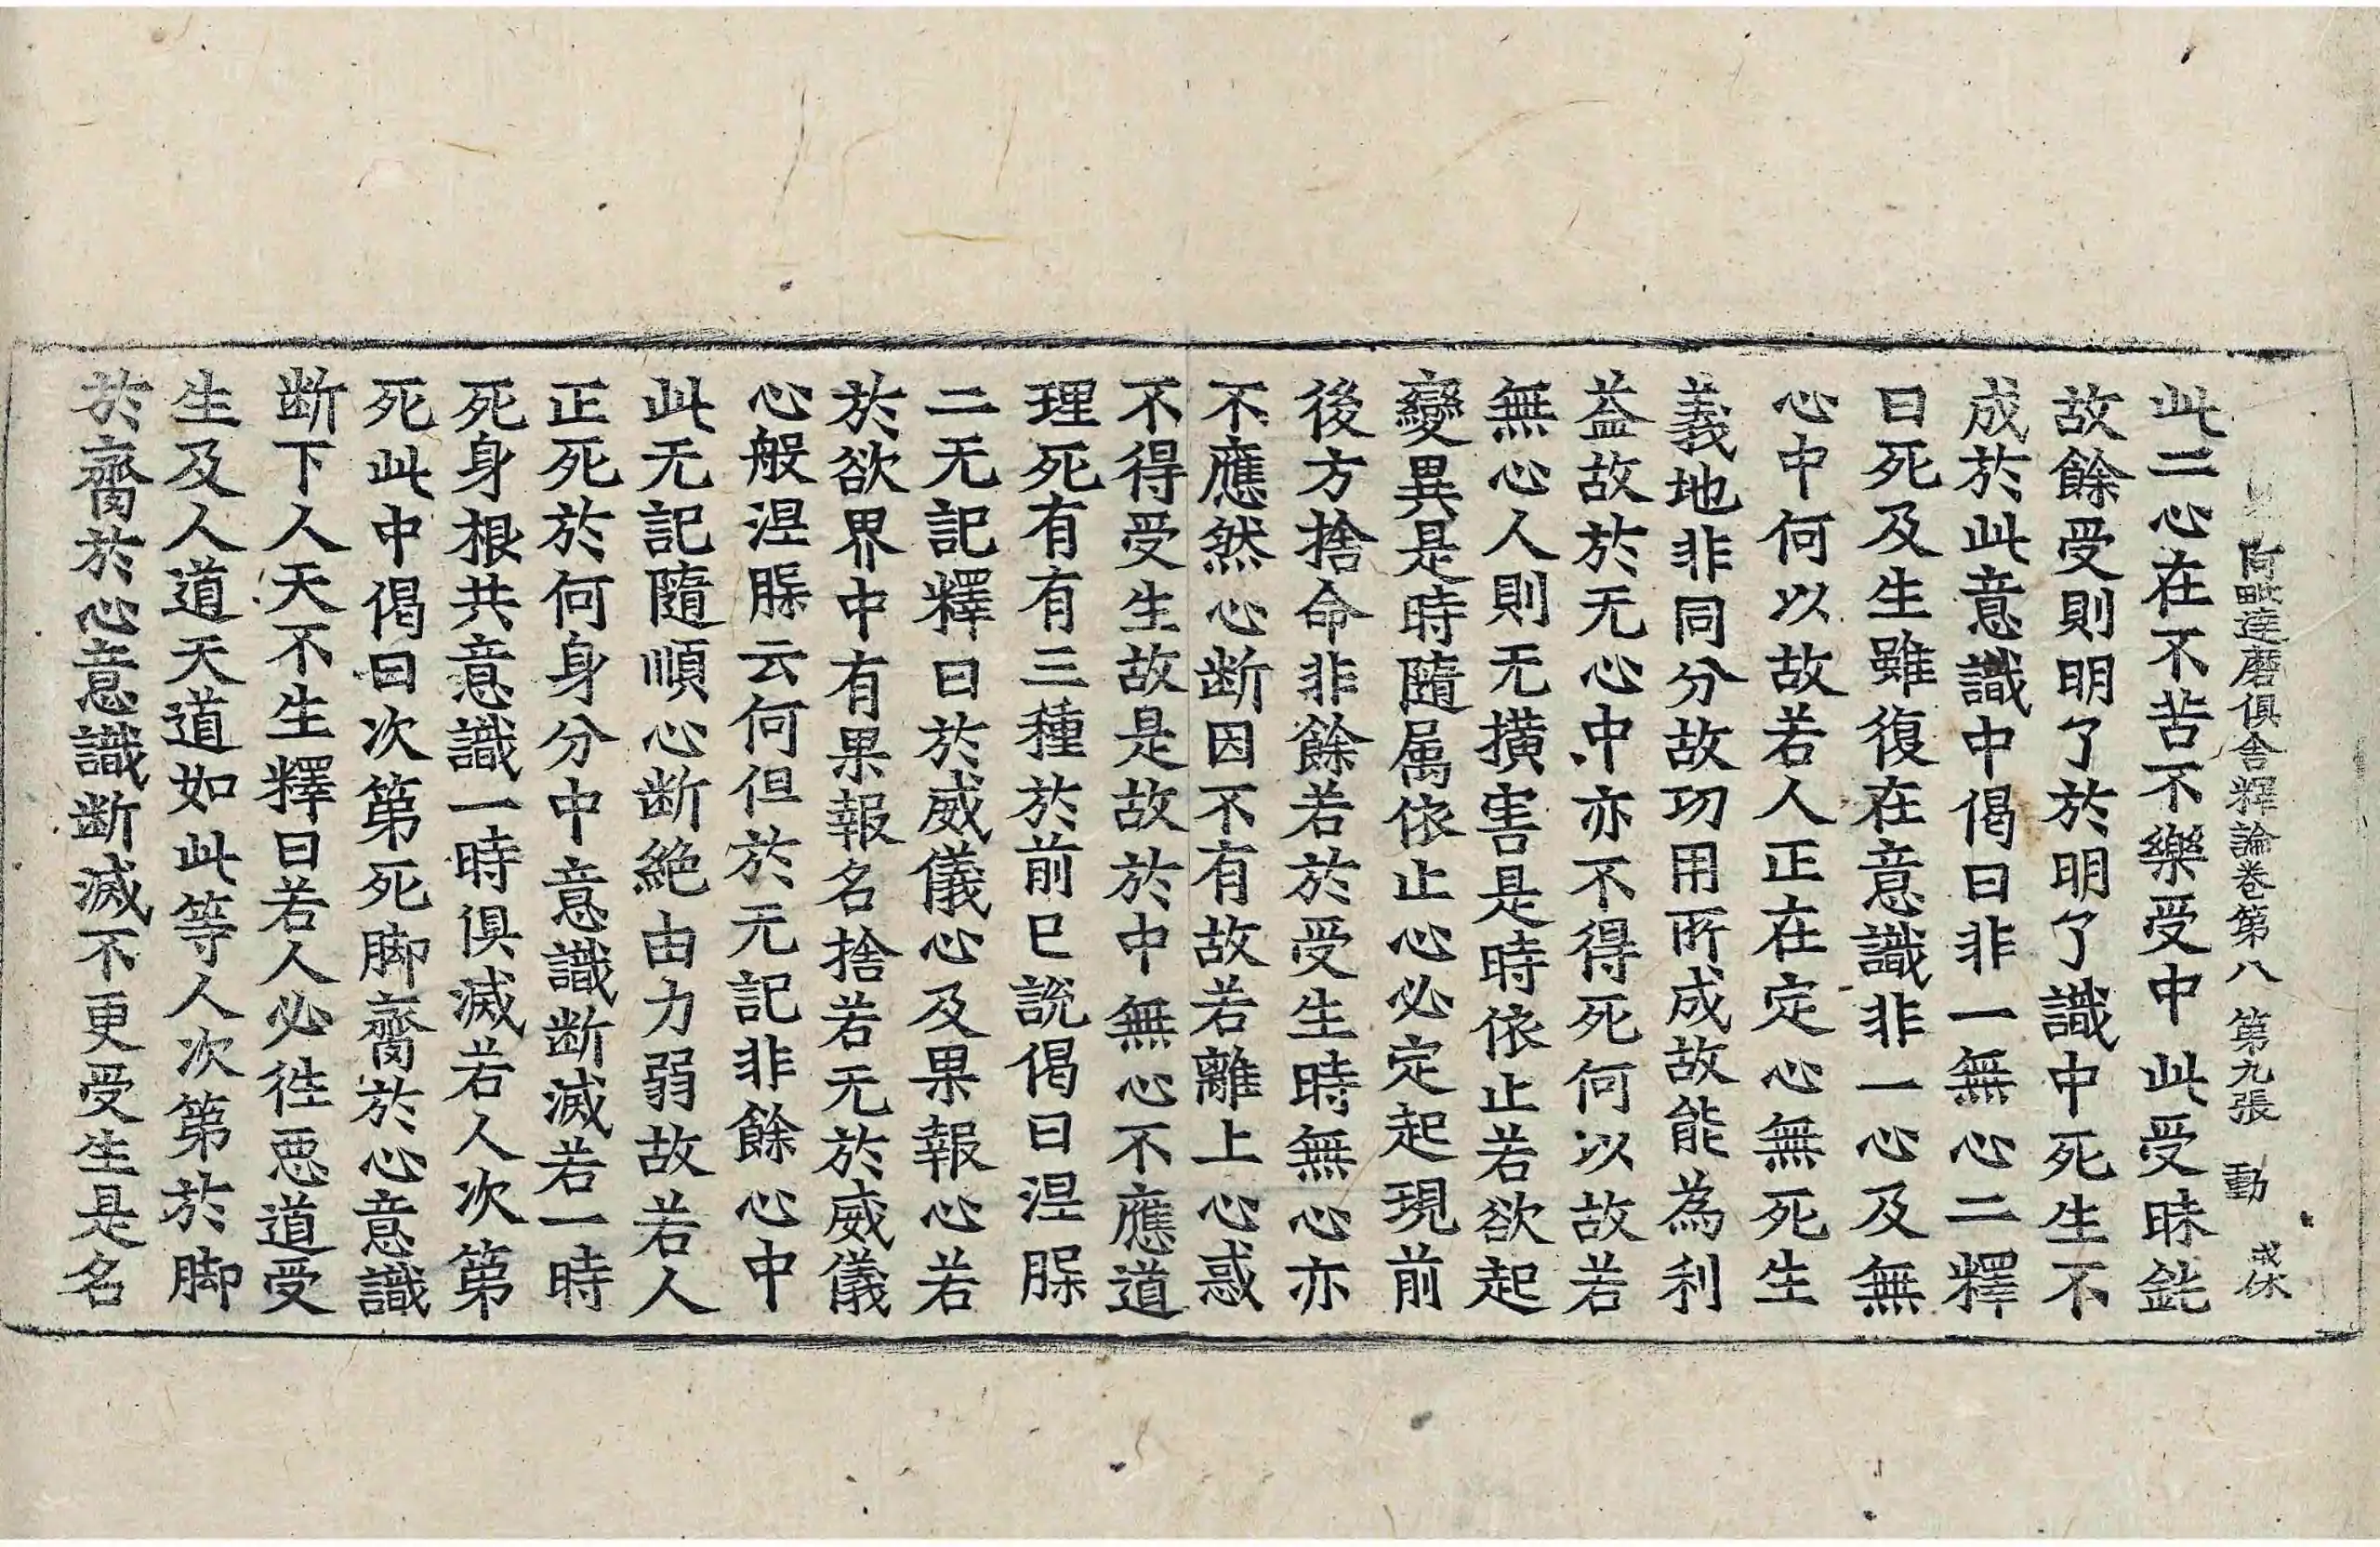 阿毗達磨俱舍釋論卷第八 第九張 動 戒休
此二心在不苦不樂受中此受昧鈍
故餘受則明了於明了識中死生不
成於此意識中偈曰非一無心二釋
曰死及生雖復在意識非一心及無
心中何以故若人正在定心無死生
義地非同分故功用所成故能為利
益故於无心中亦不得死何以故若
無心人則无撗害是時依止若欲起
變異是時隨属依止心必定起現前
後方捨命非餘若於受生時無心亦
不應然心断因不有故若離上心惑
不得受生故是故於中無心不應道
理死有有三種於前已說偈曰涅脲
二无記釋曰於威儀心及果報心若
於欲界中有果報名捨若无於威儀
心般涅脲云何但於无記非餘心中
此无記隨順心断絶由力弱故若人
正死於何身分中意識断滅若一時
死身根共意識一時俱滅若人次第
死此中偈曰次第死脚齎於心意識
断下人天不生釋曰若人必徃惡道受
生及人道天道如此等人次第於脚
於齎於心意識断滅不更受生是名